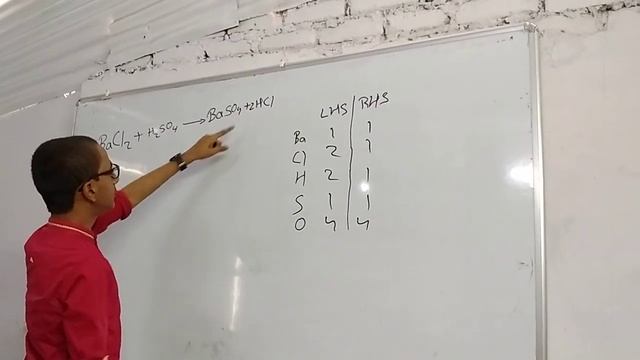 BaCl₂ + H₂SO₄ → BaSO₄ + 2HCl
LHS RHS
Ba 1 1
Cl 2 1
H 2 1
S 1 1
O 4 4